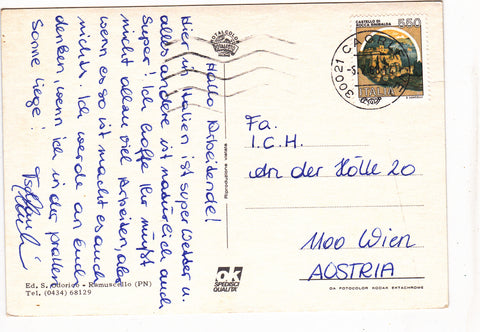 Hallo Arbeitende!
Hier in Italien ist super Wetter u.
alles andere ist natürlich auch
super! Ich hoffe Ihr müßt
nicht allzu viel Arbeiten, aber
wenn es so ist macht es auch
nichts. Ich werde an Euch
denken, wenn ich in der prallen
Sonne liege!
Ed. S. Odorico - Ramuscello (PN)
Tel. (0434) 68129
ROTALCOLOR
Riproduzione
OK
SPEDISCI
QUALITÀ
CASTELLO DI
ROCCA SINIBALDA
550
ITALIA
30021 CAO
Fa.
I.C.H.
An der Hölle 20
1100 Wien
AUSTRIA
DA FOTOCOLOR KODAK EKTACHROME